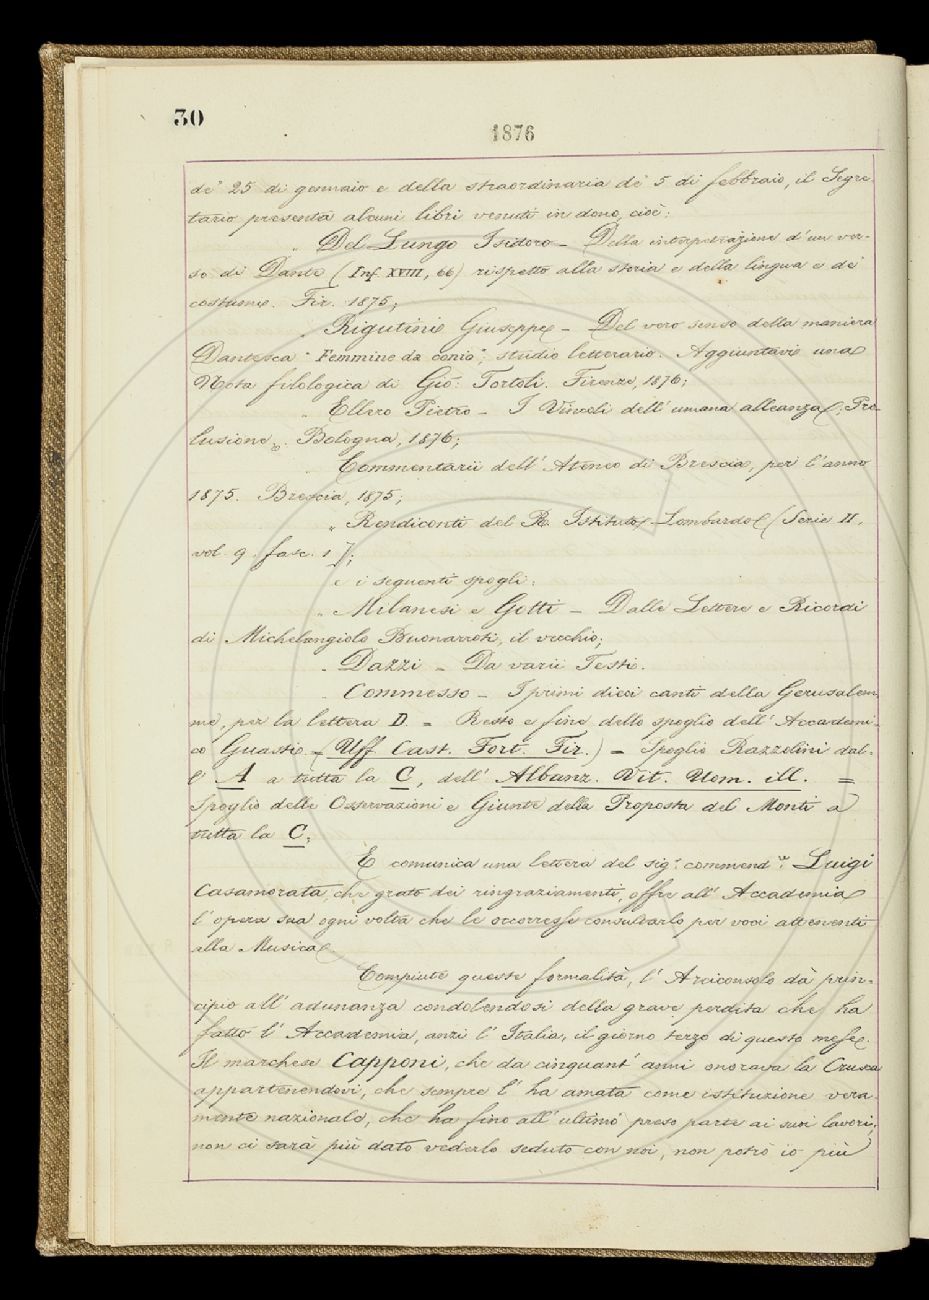 30
1876
de' 25 di gennaio e della straordinaria de' 5 di febbraio, il Segre-
tario presenta alcuni libri venuti in dono, cioè:
" Del Lungo Isidoro – Della interpetrazione d'un ver-
so di Dante (Inf. XVIII, 66) rispetto alla storia e della lingua e de'
costumi. Fir. 1875;
" Rigutini Giuseppe – Del vero senso della maniera
Dantesca "Femmine da conio"; studio letterario. Aggiuntavi una
Nota filologica di Gio: Tortoli. Firenze, 1876;
" Ellero Pietro – I Vincoli dell'umana alleanza; Pro-
lusione. Bologna, 1876;
" Commentarii dell'Ateneo di Brescia, per l'anno
1875. Brescia, 1875;
" Rendiconti del R. Istituto Lombardo (Serie II,
vol. 9. fasc. 1);
e i seguenti spogli:
" Milanesi e Gotti – Dalle Lettere e Ricordi
di Michelangiolo Buonarroti, il vecchio;
" Dazzi – Da varii Testi.
" Commesso – I primi dieci canti della Gerusalem-
me, per la lettera D. = Resto e fine dello spoglio dell'Accademi-
co Guasti – (Uff. Cast. Fort. Fir.) – Spoglio Razzolini dal-
l'A a tutta la C, dell'Albanz. Vit. Uom. ill. =
Spoglio delle Osservazioni e Giunte della Proposta del Monti a
tutta la C;
E comunica una lettera del sig.r commend.re Luigi
Casamorata, che grato dei ringraziamenti, offre all'Accademia
l'opera sua ogni volta che le occorresse consultarlo per voci attenenti
alla Musica.
Compiute queste formalità, l'Arciconsolo dà prin-
cipio all'adunanza condolendosi della grave perdita che ha
fatto l'Accademia, anzi l'Italia, il giorno terzo di questo mese.
Il marchese Capponi, che da cinquant'anni onorava la Crusca
appartenendovi, che sempre l'ha amata come istituzione vera-
mente nazionale, che ha fino all'ultimo preso parte ai suoi lavori,
non ci sarà più dato vederlo seduto con noi, non potrò io più